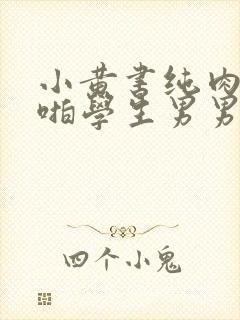 小黄書纯肉
啪學生男男
四个小鬼